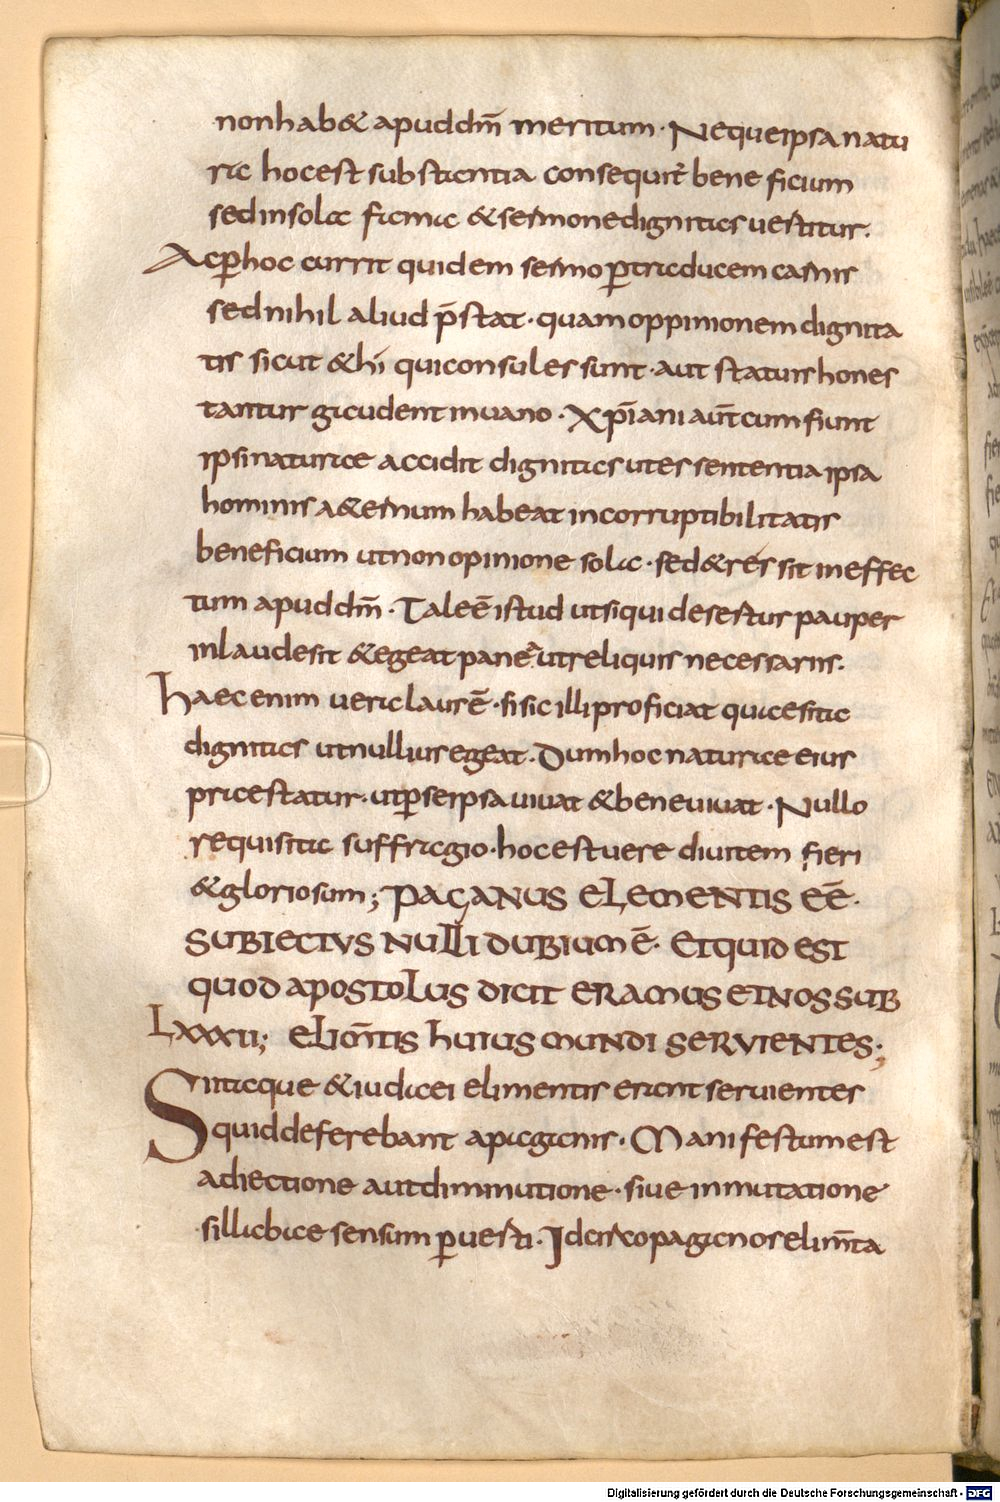 non hab& apud dm̄ meritum · Neque ipsa natu
rae hoc est substantia consequit͛ beneficium
sed in solae formae & sermone dignitas uestitur.
Ac p̄ hoc currit quidem sermo p̄ traducem carnis
sed nihil aliud p̄stat · quam oppinionem dignita
tis sicut & hi qui consules sunt · aut statuis hones
tantur gaudent in uano · Xp̄iani aut̄ cum fiunt
ipsi naturae accidit dignitas ut essententia ipsa
hominis a&ernum habeat incorruptibilitatis
beneficium ut non opinione sola · sed & res sit in effec
tum apud dm̄ · Tale ē istud ut si qui desertur pauper
in laude sit & egeat pane ut reliquis necessariis.
haec enim uera laus ē · si sic illi proficiat quaesita
dignitas ut nullius egeat · Dum hoc naturae eius
praestatur · ut p̄ se ipsa uiuat & bene uiuat · Nullo
requisita suffragio · hoc est uere diuitem fieri
& gloriosum; PAGANUS ELEMENTIS EĒ ·
SUBIECTVS NULLI DUBIUM Ē · ET QUID EST
QUOD APOSTOLUS DICIT ERAMUS ET NOS SUB
LXXXII; ELIM̄TIS HUIUS MUNDI SERVIENTES;
Sitaque & iudaei elimentis erant seruientes
quid deferebant a paganis · Manifestum est
adiectione aut diminutione · siue inmutatione
sillabae sensum p̄uerti · Idcirco paganos elim̄ta
Digitalisierung gefördert durch die Deutsche Forschungsgemeinschaft - DFG